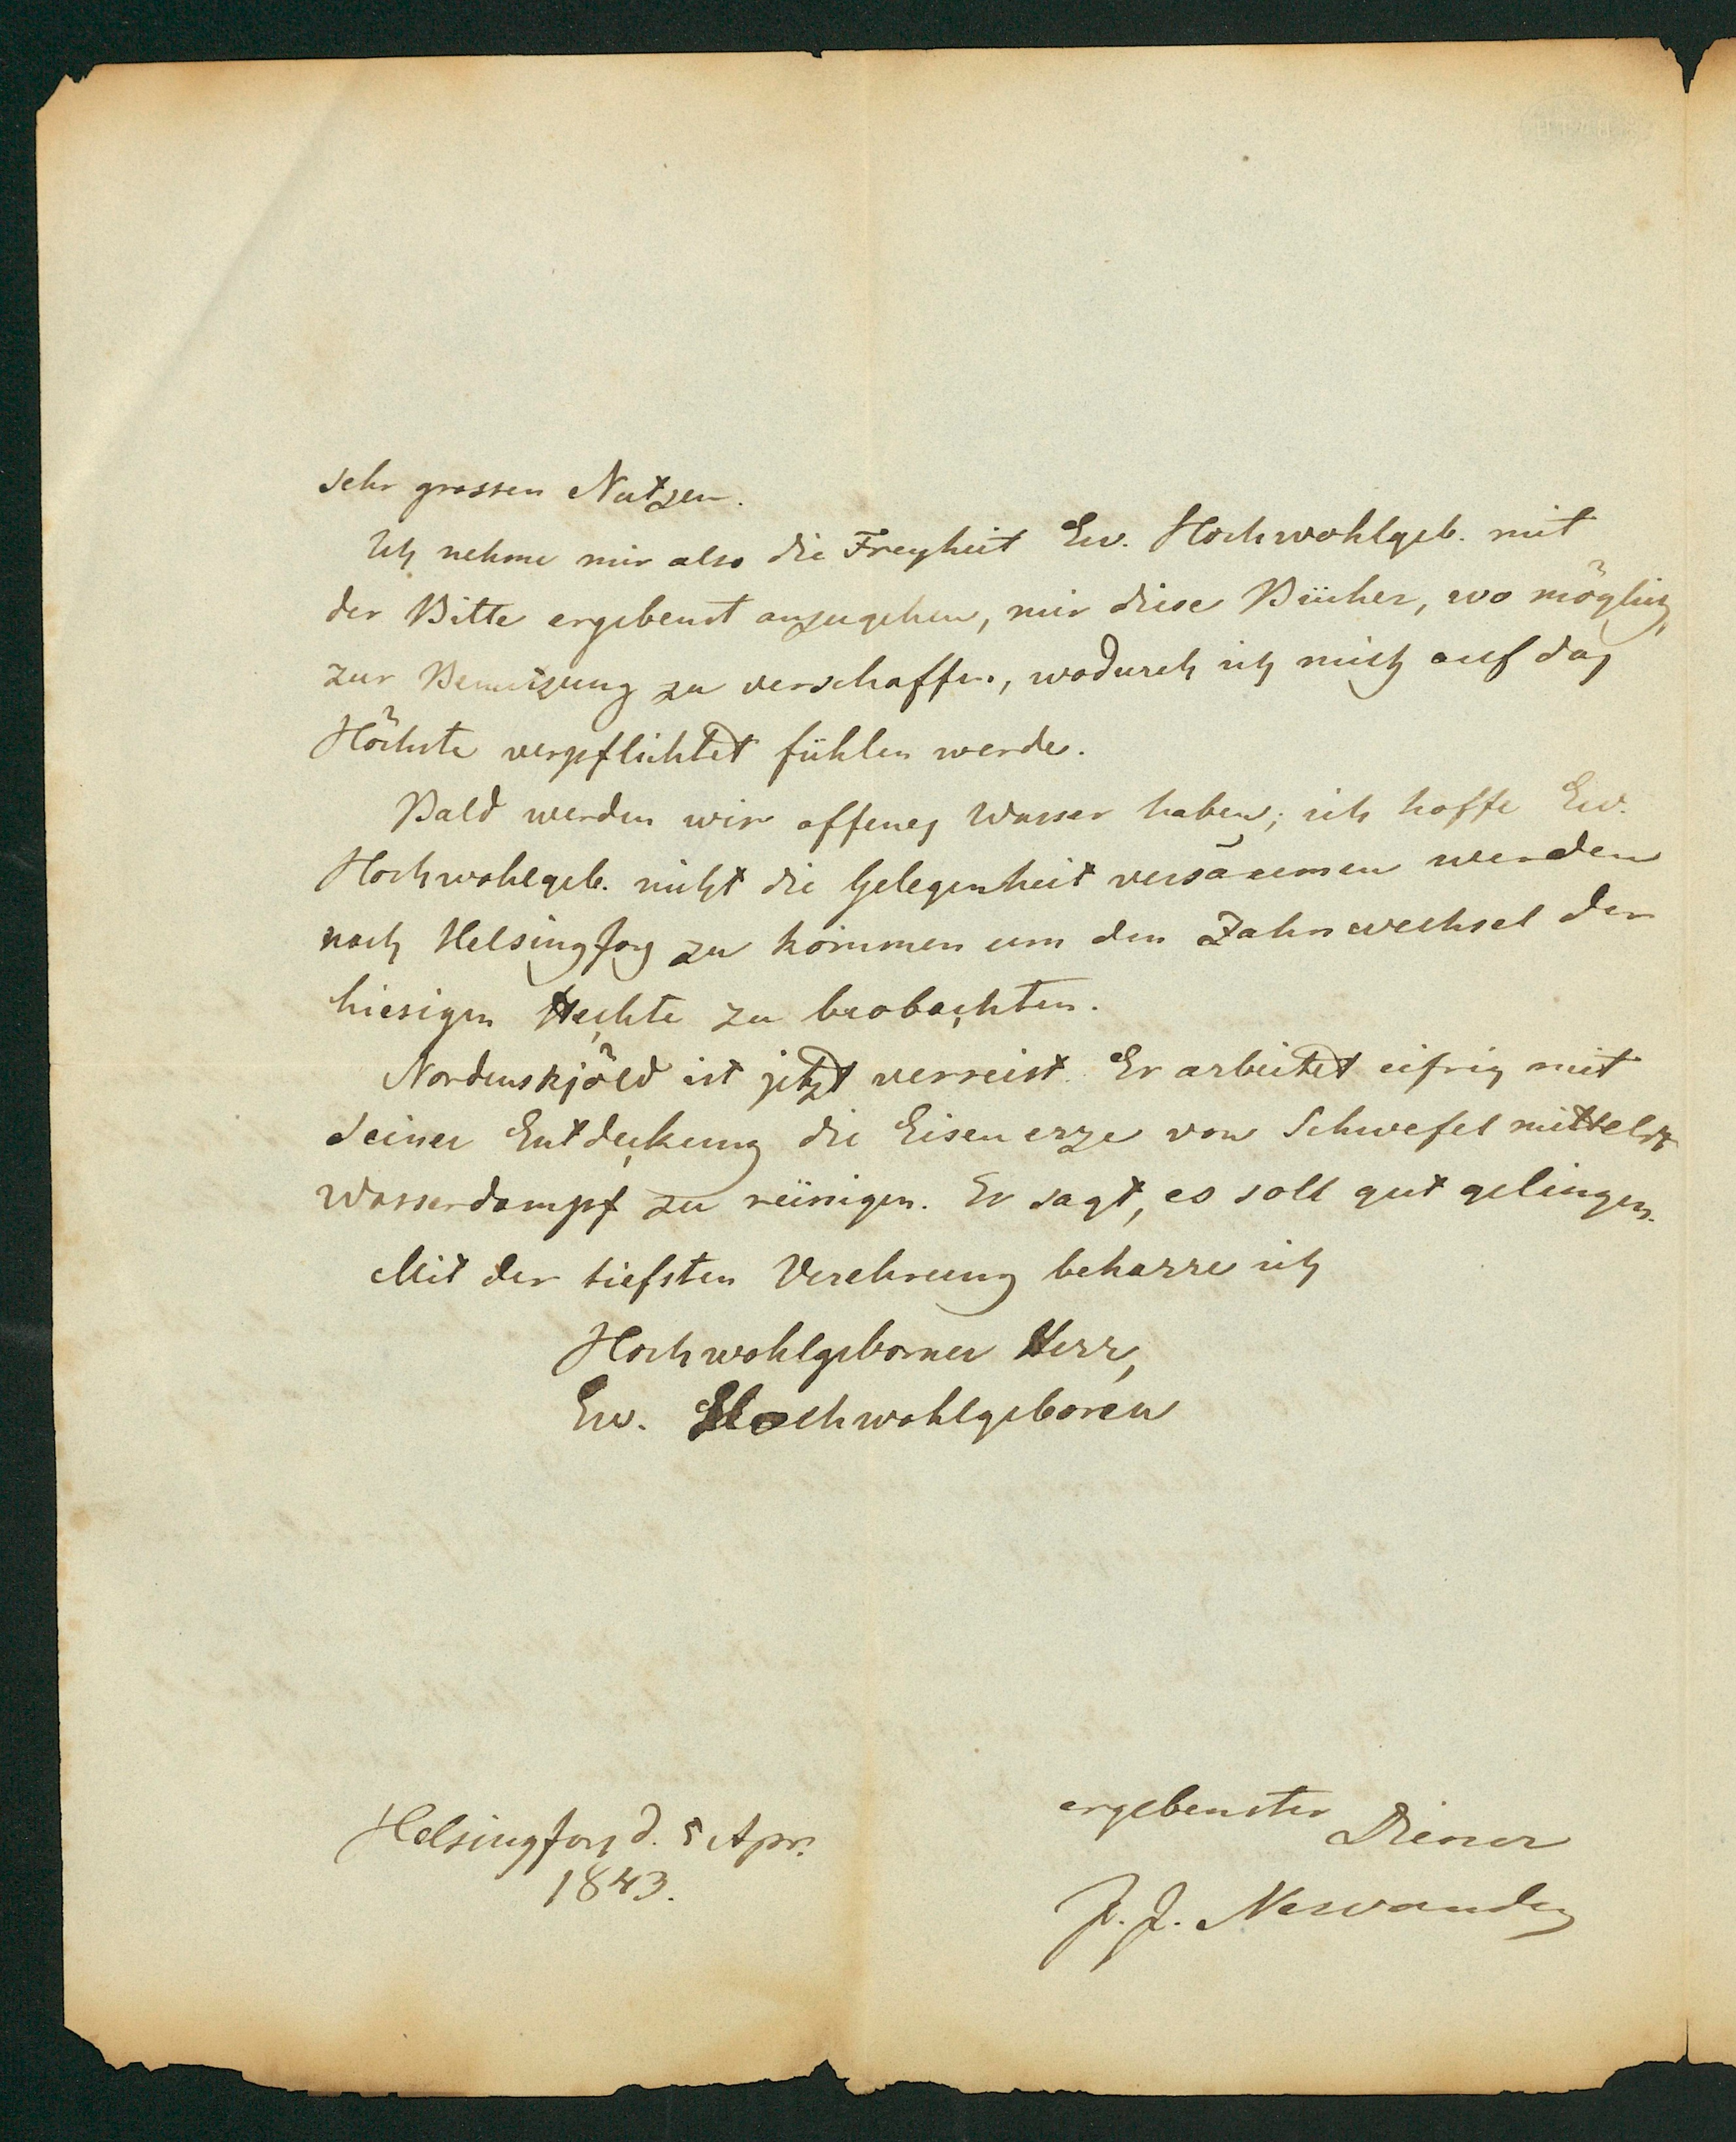 sehr grossen Nutzen.
Ich nehme mir also die Freyheit Ew. Hochwohlgeb. mit
der Bitte ergebenst anzugehen, mir diese Bücher, wo möglich,
zur Benutzung zu verschaffen, wodurch ich mich auf das
Höchste verpflichtet fühlen werde.
Bald werden wir offenes Wasser haben; ich hoffe Ew.
Hochwohlgeb. nicht die Gelegenheit versäumen werden
nach Helsingfors zu kommen um den Zahnwechsel der
hiesigen Hechte zu beobachten.
Nordenskjöld ist jetzt verreist. Er arbeitet eifrig mit
seiner Entdeckung die Eisenerze von Schwefel mittelst
Wasserdampf zu reinigen. Er sagt, es soll gut gelingen.
Mit der tiefsten Verehrung beharre ich
Hochwohlgeborner Herr,
Ew. Hochwohlgeboren
ergebenster Diener
Helsingfors d. 5 Apr.
1843.
J. J. Nervander